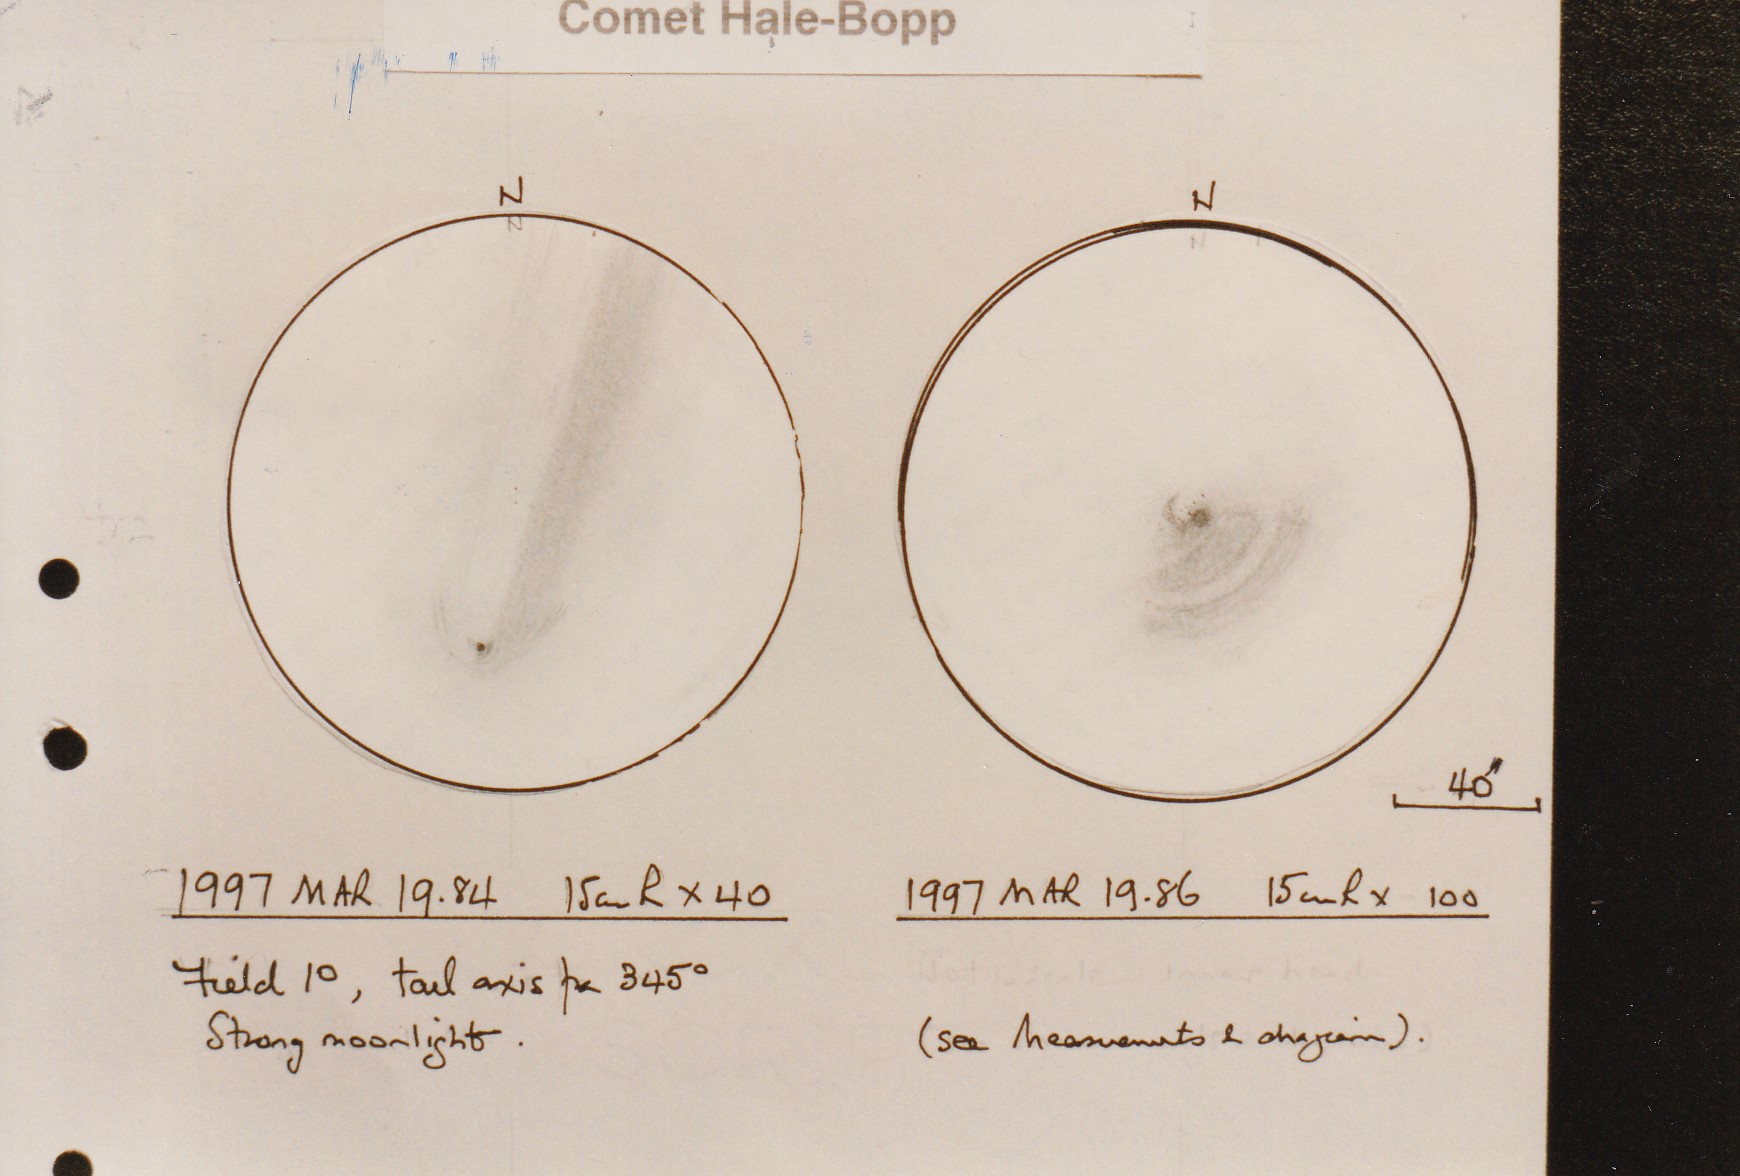 Comet Hale-Bopp
N
N
40"
1997 MAR 19.84 15cm R x 40
1997 MAR 19.86 15cm R x 100
Field 1°, tail axis pa 345°
Strong moonlight.
(see measurements & diagram).